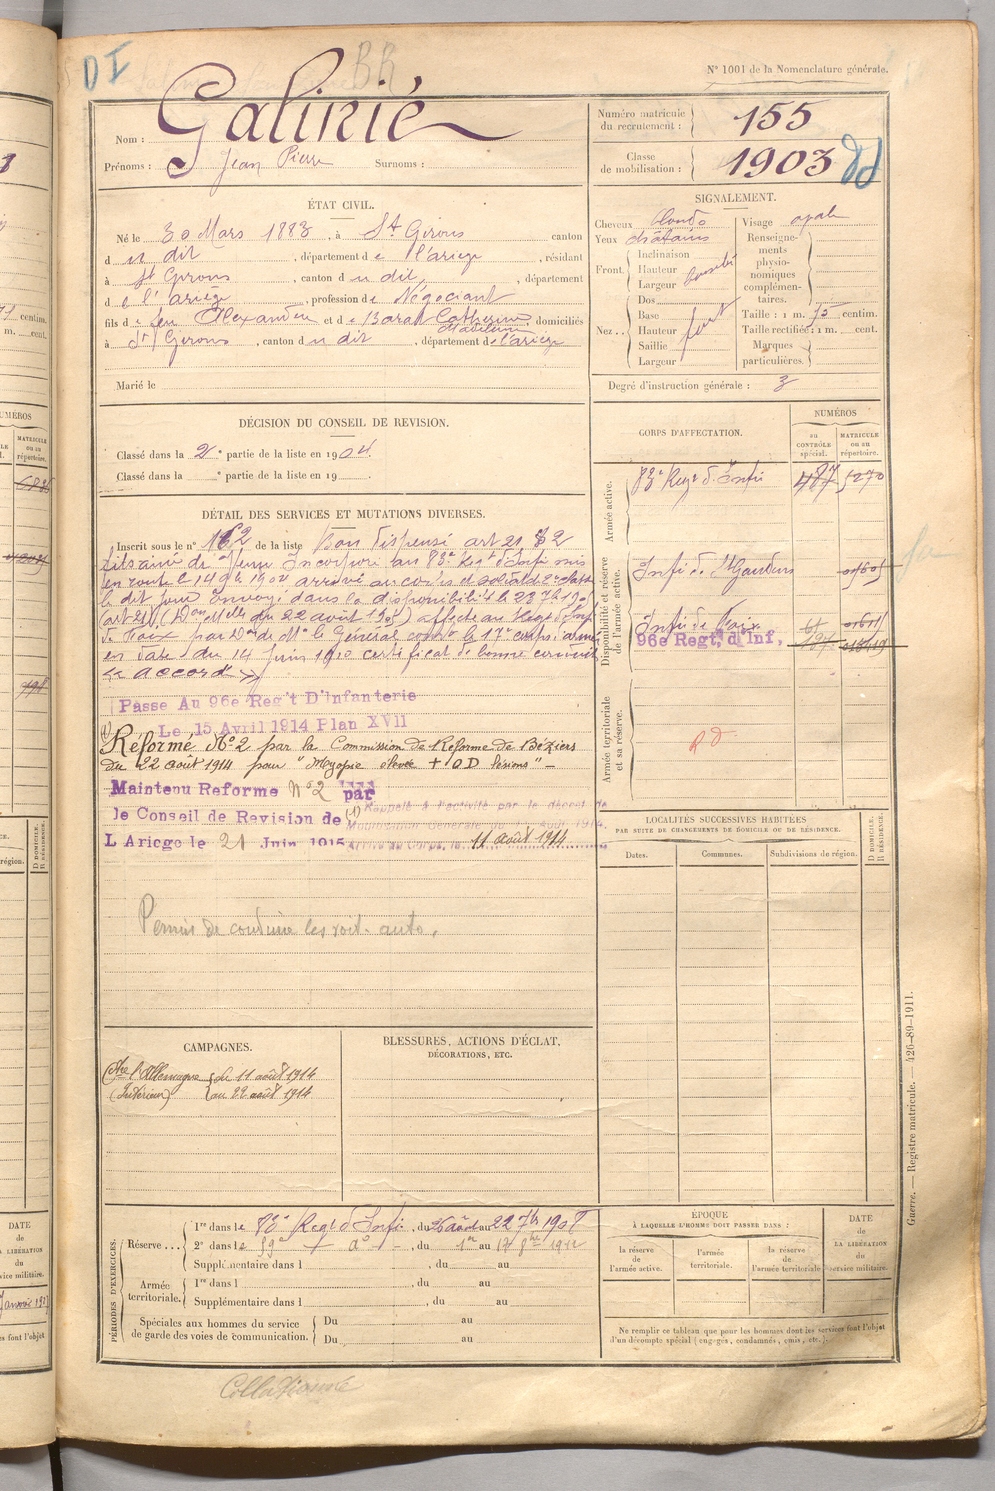 DI
BB
N° 1001 de la Nomenclature générale.
Nom : Galinié
Prénoms : Jean Pierre Surnoms :
Numéro matricule du recrutement : 155
Classe de mobilisation : 1903
ÉTAT CIVIL.
Né le 30 Mars 1883, à St Girons canton
d u dit, département de l'ariège, résidant
à St Girons, canton du dit, département
de l'ariège, profession de Négociant
fils de feu Alexandre et de Barat Catherine, domiciliés
à St Girons, canton du dit, département de l'ariège
Marié le
SIGNALEMENT.
Cheveux blonds
Yeux châtains
Front. Inclinaison
Hauteur
Largeur
Nez. Dos
Base
Hauteur fort
Saillie
Largeur
Visage ovale
Renseignements physionomiques complémentaires.
Taille : 1 m. 75 centim.
Taille rectifiée : 1 m. cent.
Marques particulières.
Degré d'instruction générale : 3
DÉCISION DU CONSEIL DE REVISION.
Classé dans la 2e partie de la liste en 1904.
Classé dans la e partie de la liste en 19
DÉTAIL DES SERVICES ET MUTATIONS DIVERSES.
Inscrit sous le n° 162 de la liste Bon dispensé art 21
fils aîné de veuve Incorporé au 83e Régt d'Infie mis
en route le 14 9bre 1904 arrivé au corps et soldat de 2e classe
le dit jour Envoyé dans la disponibilité le 23 7bre 1905
(art 21) du 22 août 1905) affecté au Régt d'Infie
de Foix par Don de Mr le Général comt le 17e corps d'armée
en date du 14 Juin 1910 certificat de bonne conduite
« Accordé »
Passe Au 96e Reg't D'Infanterie
Le 15 Avril 1914 Plan XVII
Réformé N° 2 par la Commission de Réforme de Béziers
du 22 août 1914 pour "Myopie élevée + O D lésions" –
Maintenu Reforme N°2 par
le Conseil de Revision de
L Ariege le 21 Juin 1915
(1) Rappelé à l'activité par le décret de
Mobilisation Générale du 1er Août 1914.
Arrivé au Corps, le 11 août 1914
Permis de conduire les voit. auto.
CORPS D'AFFECTATION.
NUMÉROS
au CONTRÔLE spécial.
MATRICULE ou au répertoire.
Armée active.
83e Régt d'Infie 487 5270
Disponibilité et réserve de l'armée active.
Infie de St Gaudens
Infie de Foix
96e Regt, d'Inf,
Armée territoriale et sa réserve.
LOCALITÉS SUCCESSIVES HABITÉES
PAR SUITE DE CHANGEMENTS DE DOMICILE OU DE RÉSIDENCE.
Dates. Communes. Subdivisions de région. D DOMICILE. R RÉSIDENCE.
CAMPAGNES.
Ctre l'Allemagne du 11 août 1914
(Intérieur) au 22 août 1914
BLESSURES, ACTIONS D'ÉCLAT,
DÉCORATIONS, ETC.
PÉRIODES D'EXERCICES.
Réserve ... 1re dans le Régt d'Infie, du 26 août au 22 7bre 1908
2e dans le 59e – do –, du 1er au 17 8bre 1912
Supplémentaire dans l , du au
Armée territoriale. 1re dans l , du au
Supplémentaire dans l , du au
Spéciales aux hommes du service de garde des voies de communication. Du au
Du au
ÉPOQUE
À LAQUELLE L'HOMME DOIT PASSER DANS :
la réserve de l'armée active.
l'armée territoriale.
la réserve de l'armée territoriale
DATE
DE
LA LIBÉRATION
DU
service militaire.
Ne remplir ce tableau que pour les hommes dont les services font l'objet
d'un décompte spécial (engagés, condamnés, omis, etc.).
Guerre. — Registre matricule. — 426-89-1911.
Collationné